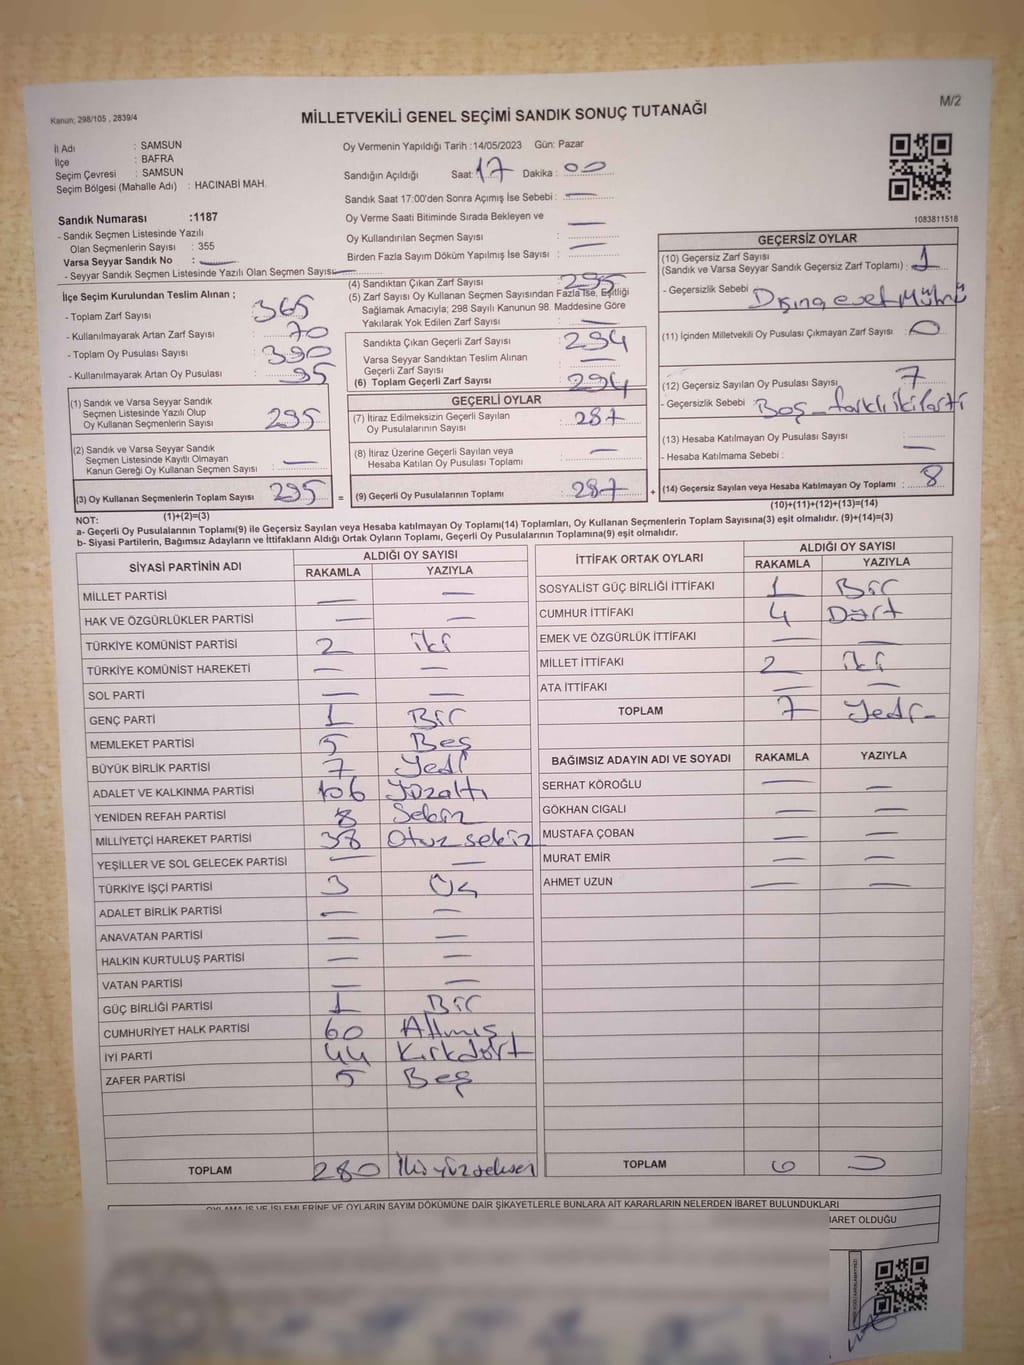 Kanun; 298/105 , 2839/4
M/2
MİLLETVEKİLİ GENEL SEÇİMİ SANDIK SONUÇ TUTANAĞI
İl Adı : SAMSUN
İlçe : BAFRA
Seçim Çevresi : SAMSUN
Seçim Bölgesi (Mahalle Adı) : HACINABİ MAH.
Sandık Numarası :1187
- Sandık Seçmen Listesinde Yazılı
Olan Seçmenlerin Sayısı : 355
Varsa Seyyar Sandık No : —
- Seyyar Sandık Seçmen Listesinde Yazılı Olan Seçmen Sayısı: —
Oy Vermenin Yapıldığı Tarih :14/05/2023 Gün: Pazar
Sandığın Açıldığı Saat: 17 Dakika : 00
Sandık Saat 17:00'den Sonra Açımış İse Sebebi : —
Oy Verme Saati Bitiminde Sırada Bekleyen ve —
Oy Kullandırılan Seçmen Sayısı :
Birden Fazla Sayım Döküm Yapılmış İse Sayısı : —
1083811518
İlçe Seçim Kurulundan Teslim Alınan ;
- Toplam Zarf Sayısı : 365
- Kullanılmayarak Artan Zarf Sayısı : 70
- Toplam Oy Pusulası Sayısı : 390
- Kullanılmayarak Artan Oy Pusulası : 95
(1) Sandık ve Varsa Seyyar Sandık
Seçmen Listesinde Yazılı Olup
Oy Kullanan Seçmenlerin Sayısı : 295
(2) Sandık ve Varsa Seyyar Sandık
Seçmen Listesinde Kayıtlı Olmayan
Kanun Gereği Oy Kullanan Seçmen Sayısı : —
(3) Oy Kullanan Seçmenlerin Toplam Sayısı : 295
(1)+(2)=(3)
(4) Sandıktan Çıkan Zarf Sayısı : 295
(5) Zarf Sayısı Oy Kullanan Seçmen Sayısından Fazla İse, Eşitliği
Sağlamak Amacıyla; 298 Sayılı Kanunun 98. Maddesine Göre
Yakılarak Yok Edilen Zarf Sayısı : —
Sandıkta Çıkan Geçerli Zarf Sayısı : 294
Varsa Seyyar Sandıktan Teslim Alınan
Geçerli Zarf Sayısı : —
(6) Toplam Geçerli Zarf Sayısı : 294
GEÇERLİ OYLAR
(7) İtiraz Edilmeksizin Geçerli Sayılan
Oy Pusulalarının Sayısı : 287
(8) İtiraz Üzerine Geçerli Sayılan veya
Hesaba Katılan Oy Pusulası Toplamı : —
= (9) Geçerli Oy Pusulalarının Toplamı : 287 +
GEÇERSİZ OYLAR
(10) Geçersiz Zarf Sayısı
(Sandık ve Varsa Seyyar Sandık Geçersiz Zarf Toplamı) : 1
- Geçersizlik Sebebi : Dışına evet Mührü
(11) İçinden Milletvekili Oy Pusulası Çıkmayan Zarf Sayısı : 0
(12) Geçersiz Sayılan Oy Pusulası Sayısı : 7
- Geçersizlik Sebebi : Boş - farklı
(13) Hesaba Katılmayan Oy Pusulası Sayısı :
- Hesaba Katılmama Sebebi : —
(14) Geçersiz Sayılan veya Hesaba Katılmayan Oy Toplamı : 8
(10)+(11)+(12)+(13)=(14)
NOT:
a- Geçerli Oy Pusulalarının Toplamı(9) ile Geçersiz Sayılan veya Hesaba katılmayan Oy Toplamı(14) Toplamları, Oy Kullanan Seçmenlerin Toplam Sayısına(3) eşit olmalıdır. (9)+(14)=(3)
b- Siyasi Partilerin, Bağımsız Adayların ve İttifakların Aldığı Ortak Oyların Toplamı, Geçerli Oy Pusulalarının Toplamına(9) eşit olmalıdır.
SİYASİ PARTİNİN ADI ALDIĞI OY SAYISI
RAKAMLA YAZIYLA
MİLLET PARTİSİ — —
HAK VE ÖZGÜRLÜKLER PARTİSİ — —
TÜRKİYE KOMÜNİST PARTİSİ 2 iki
TÜRKİYE KOMÜNİST HAREKETİ — —
SOL PARTİ — —
GENÇ PARTİ 1 Bir
MEMLEKET PARTİSİ 5 Beş
BÜYÜK BİRLİK PARTİSİ 7 Yedi
ADALET VE KALKINMA PARTİSİ 106 Yüzaltı
YENİDEN REFAH PARTİSİ 8 Sekiz
MİLLİYETÇİ HAREKET PARTİSİ 38 Otuz sekiz
YEŞİLLER VE SOL GELECEK PARTİSİ — —
TÜRKİYE İŞÇİ PARTİSİ 3 Üç
ADALET BİRLİK PARTİSİ — —
ANAVATAN PARTİSİ — —
HALKIN KURTULUŞ PARTİSİ — —
VATAN PARTİSİ — —
GÜÇ BİRLİĞİ PARTİSİ 1 Bir
CUMHURİYET HALK PARTİSİ 60 Altmış
İYİ PARTİ 44 Kırkdört
ZAFER PARTİSİ 5 Beş
TOPLAM 280 İkiyüzseksen
İTTİFAK ORTAK OYLARI ALDIĞI OY SAYISI
RAKAMLA YAZIYLA
SOSYALİST GÜÇ BİRLİĞİ İTTİFAKI 1 Bir
CUMHUR İTTİFAKI 4 Dört
EMEK VE ÖZGÜRLÜK İTTİFAKI — —
MİLLET İTTİFAKI 2 iki
ATA İTTİFAKI — —
TOPLAM 7 Yedi-
BAĞIMSIZ ADAYIN ADI VE SOYADI RAKAMLA YAZIYLA
SERHAT KÖROĞLU — —
GÖKHAN CIGALI — —
MUSTAFA ÇOBAN — —
MURAT EMİR — —
AHMET UZUN — —
TOPLAM 0
OYLAMA İŞ VE İŞLEMLERİNE VE OYLARIN SAYIM DÖKÜMÜNE DAİR ŞİKAYETLERLE BUNLARA AİT KARARLARIN NELERDEN İBARET BULUNDUKLARI
İBARET OLDUĞU